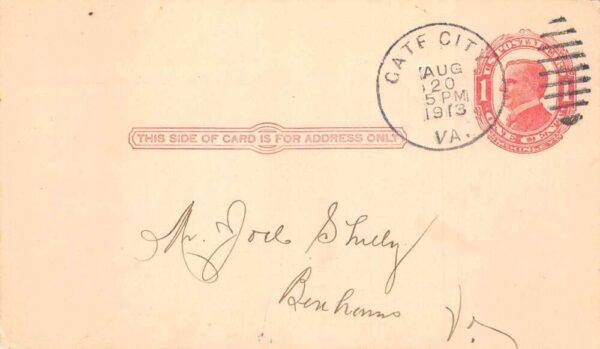 GATE CITY
AUG
20
5 PM
1913
VA.
1
THIS SIDE OF CARD IS FOR ADDRESS ONLY
Mr. Joel
Benhams Va.